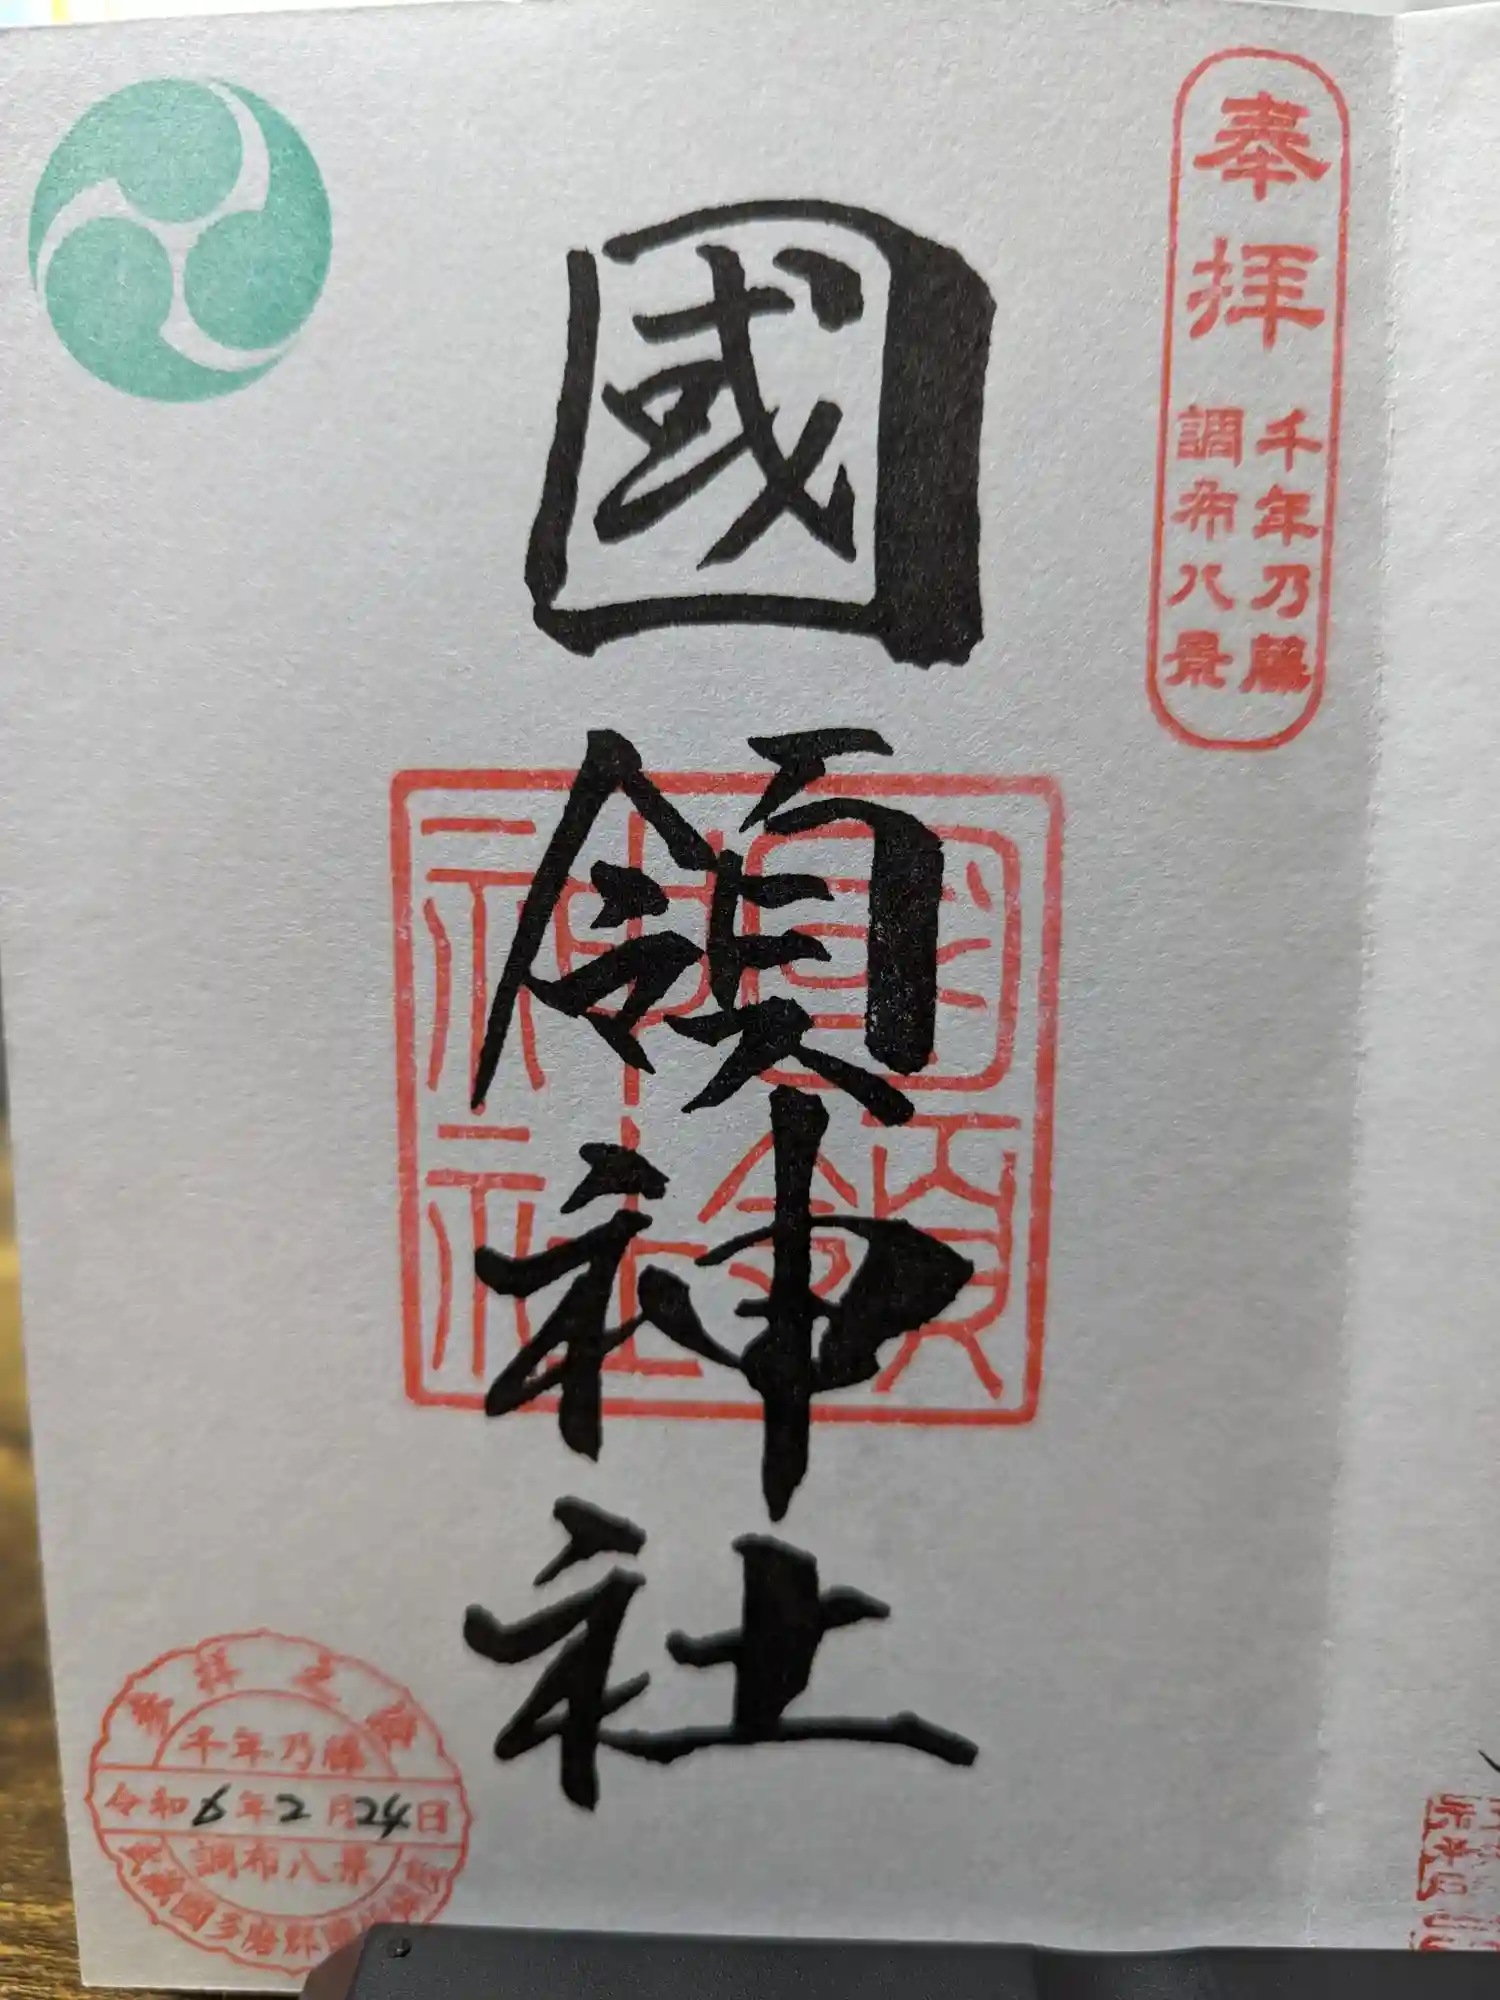 奉拝
千年乃藤
調布八景
國領神社
國領神社
参拝之証
千年乃藤
令和6年2月24日
調布八景